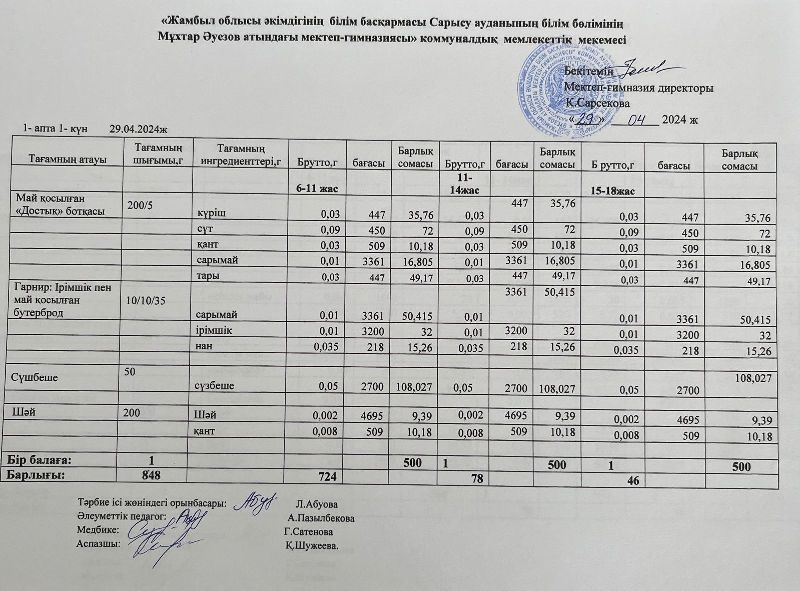 «Жамбыл облысы әкімдігінің білім басқармасы Сарысу ауданының білім бөлімінің
Мұхтар Әуезов атындағы мектеп-гимназиясы» коммуналдық мемлекеттік мекемесі
Бекітемін
Мектеп-гимназия директоры
Қ.Сарсекова
« 29 » 04 2024 ж
1- апта 1- күн 29.04.2024ж
Тағамның атауы Тағамның шығымы,г Тағамның ингредиенттері,г Брутто,г бағасы Барлық сомасы Брутто,г бағасы Барлық сомасы Б рутто,г бағасы Барлық сомасы
6-11 жас 11-14жас 15-18жас
Май қосылған «Достық» ботқасы 200/5 күріш 0,03 447 35,76 0,03 447 35,76 0,03 447 35,76
сүт 0,09 450 72 0,09 450 72 0,09 450 72
қант 0,03 509 10,18 0,03 509 10,18 0,03 509 10,18
сарымай 0,01 3361 16,805 0,01 3361 16,805 0,01 3361 16,805
тары 0,03 447 49,17 0,03 447 49,17 0,03 447 49,17
Гарнир: Ірімшік пен май қосылған бутерброд 10/10/35 сарымай 0,01 3361 50,415 0,01 3361 50,415 0,01 3361 50,415
ірімшік 0,01 3200 32 0,01 3200 32 0,01 3200 32
нан 0,035 218 15,26 0,035 218 15,26 0,035 218 15,26
Сүшбеше 50 сүзбеше 0,05 2700 108,027 0,05 2700 108,027 0,05 2700 108,027
Шәй 200 Шәй 0,002 4695 9,39 0,002 4695 9,39 0,002 4695 9,39
қант 0,008 509 10,18 0,008 509 10,18 0,008 509 10,18
Бір балаға: 1 500 1 500 1 500
Барлығы: 848 724 78 46
Тәрбие ісі жөніндегі орынбасары: Л.Абуова
Әлеуметтік педагог: А.Пазылбекова
Медбике: Г.Сатенова
Аспазшы: Қ.Шужеева.